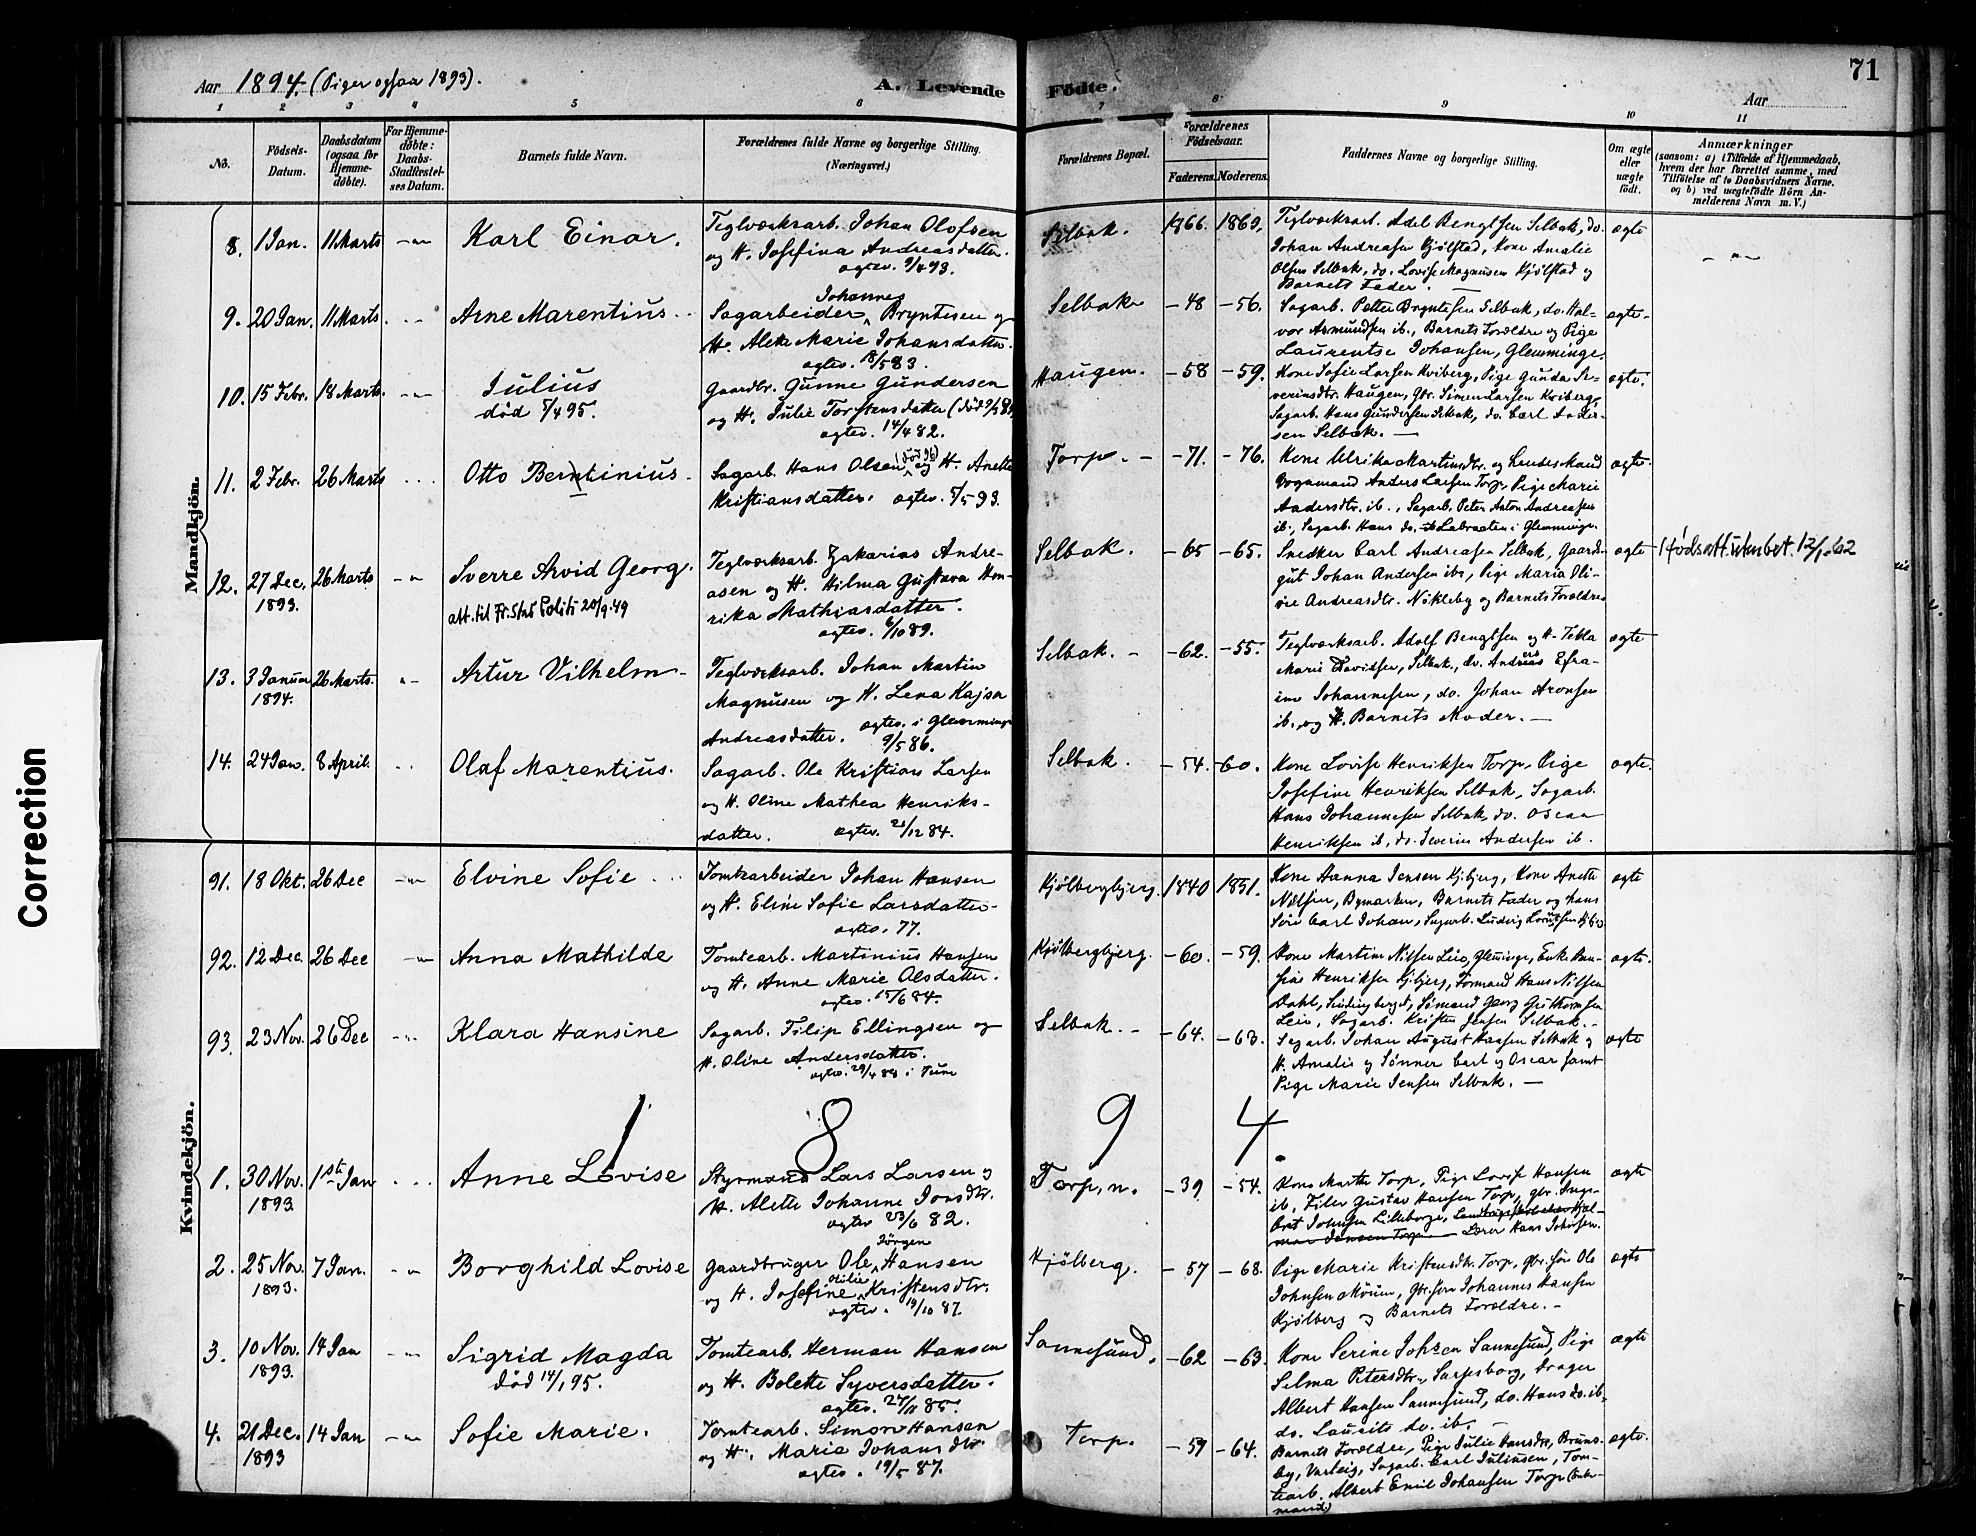 Aar 1894. (Piger ogsaa 1893).
A. Levende Födte.
Aar
71
1 2 3 4 5 6 7 8 9 10 11
No.
Födsels-Datum.
Daabsdatum (ogsaa for Hjemme-döbte).
For Hjemme-döbte: Daabs-Stadfæstel-ses Datum.
Barnets fulde Navn.
Forældrenes fulde Navne og borgerlige Stilling. (Næringsvei.)
Forældrenes Bopæl.
Forældrenes Födselsaar.
Faderens. Moderens.
Faddernes Navne og borgerlige Stilling.
Om ægte eller uægte födt.
Anmærkninger
(saasom: a) i Tilfælde af Hjemmedaab,
hvem der har forrettet samme, med
Tilföielse af to Daabsvidners Navne,
og b) ved uægtefödte Börn An-
melderens Navn m. V.)
Mandkjön.
8. 1 Jan. 11 Marts Karl Einar. Teglværksarb. Johan Olofsen Selbak. 1866. 1869. Teglværksarb. Adel Bengtsen Selbak, do. ægte
og H. Josefina Andreasdatter. Johan Andreasen Kjølstad, Kone Amalie
ægtev. 9/4 93. Olsen Selbak, do. Lovise Magnusen Kjølstad og
Barnets Fader.
9. 20 Jan. 11 Marts. Arne Marentius. Sagarbeider Johannes Bryntesen og Selbak -48 -56. Sagarb. Peter Bryntesen Selbak, do. Hal- ægte.
H. Alette Marie Johansdatter. vor Asmundsen ib., Barnets Forældre og Pige
ægtev. 18/5 83. Laurentse Johansen, Glemminge.
10. 15 Febr. 18 Marts. Julius Gaardbr. Gunne Gundersen Haugen. -58 -59. Kone Sofie Larsen Kviberg, Pige Gunda Se- ægte.
död 7/4 95. og H. Julie Torstensdatter verinsdtr. Haugen, Gbr. Simen Larsen Kviberg,
ægtev. 14/4 82. Sagarb. Hans Gundersen Selbak, do. Carl Ander-
sen Selbak.
11. 2 Febr. 26 Marts Otto Berntinius. Sagarb. Hans Olsen (död 96) og H. Anette Torp. -71. -76. Kone Ulrika Martinsdtr. og Landes Mand ægte.
Kristiansdatter. ægtev. 7/5 93. Vognmand Anders Larsen Torp, Pige Marie
Andersdtr. ib., Sagarb. Peter Anton Andreasen
ib., Sagarb. Hans do. Labraaten i Glemminge.
12. 27 Dec. 1893. 26 Marts Sverre Arvid Georg. Teglværksarb. Zakarias Andre- Selbak. -65 -65. Snedker Carl Andreasen Selbak, Gaard- ægte Fødsatt. utenbet. 12/ 62
att. til Fr.stad Politi 20/9.49 asen og H. Hilma Gustava Hen- gut Johan Andersen ibo, Pige Maria Oli-
rika Mathiasdatter. vie Andreasdtr. Nökleby og Barnets Forældre.
ægtev. 6/10 89.
13. 3 Januar 1894. 26 Marts. Artur Vilhelm Teglværksarb. Johan Martin Selbak. -62. -55. Teglværksarb. Adolf Bengtsen og H. Tekla ægte
Magnusen og H. Lena Kajsa Marie Davidsen, Selbak, do. Andreas Efra-
Andreasdatter. ægtev. i Glemminge im Johannesen, do. Johan Aronsen
9/5 86. ib. og Barnets Moder.
14. 24 Jan. 8 April. Olaf Marentius. Sagarb. Ole Kristian Larsen Selbak. -54. -60. Kone Lovise Henriksen Torp, Pige ægte.
og H. Oline Mathea Henriks- Josefine Henriksen Selbak, Sagarb.
datter. ægtev. 21/12 84. Hans Johannesen Selbak, do. Oscar
Henriksen ib, do. Severin Andersen ib.
Kvindekjön.
91. 18 Okt. 26 Dec Elvine Sofie Tomtearbeider Johan Hansen Kjölbergbjerg. 1840 1851. Kone Hanna Jensen Kjbjerg, Kone Anette ægte
og H. Eline Sofie Larsdatter. Nilsen, Bymarken, Barnets Fader og hans
ægtev. 77. Søn Carl Johan, Sagarb. Ludvig
92. 12 Dec. 26 Dec Anna Mathilde Tomtearb. Martinius Hansen Kjölbergbjerg. -60. -59. Kone Martine Nilsen Leie, Glemminge, Enke Han- ægte.
og H. Anne Marie Olsdatter. sine Henriksen Kjbjerg, Formand Hans Nilsen
ægtev. 15/6 84. Dahl, Sömand Georg Guthormsen
Leie, Sagarb. Kristen Jensen Selbak.
93. 23 Nov. 26 Dec Klara Hansine Sagarb. Filip Ellingsen og Selbak. -64. -63. Sagarb. Johan August Hansen Selbak og ægte
H. Oline Andersdatter. H. Amalie og Sønner Carl og Oscar samt
ægtev. 29/4 88 i Tune Pige Marie Jensen Selbak.
1 8 9 4.
1. 30 Nov. 1893 1ste Jan Anne Lovise Styrmand Lars Larsen og Torp, n. -39 -54. Kone Marthe Torp, Pige Lovise Hansen ægte
H. Alette Johanne Jonsdtr. ib., Filer Gustav Hansen Torp, gbr. Inge-
ægtev 23/6 82. bret Johnsen Lilleborge, Lærer Hans Johnsen.
2. 25 Nov. 1893. 7 Jan. Borghild Lovise Gaardbruger Ole Jørgen Hansen Kjölberg. -57 -68. Pige Marie Kristensdtr. Torp, gbr.søn Ole ægte
og H. Josefine Otilie Kristensdtr. Johnsen Moum, gbr.søn Johannes Hansen
ægtev. 19/10 87. Kjølberg og Barnets Forældre.
3. 10 Nov. 1893. 14 Jan Sigrid Magda Tomtearb. Herman Hansen Sannesund. -62 -63. Kone Serine Johsen Sannesund, Pige ægte
Död 14/1 95. og H. Bolette Syversdatter. Selma Petersdtr., Sarpsborg, Drager
ægtev. 27/11 85. Albert Hansen Sannesund, do. Hans do. ib.
do. Laurits do. ib.
4. 21 Dec. 1893 14 Jan Sofie Marie. Tomtearb. Simon Hansen Torp. -59 -64. Barnets Forældre, Pige Julie Hansdtr., Bruns- ægte.
og H. Marie Johansdtr. by, Varteig, Sagarb. Carl Juliusen, Tom-
ægtev. 19/5 87. tearb. Albert Emil Johansen Torp
Correction